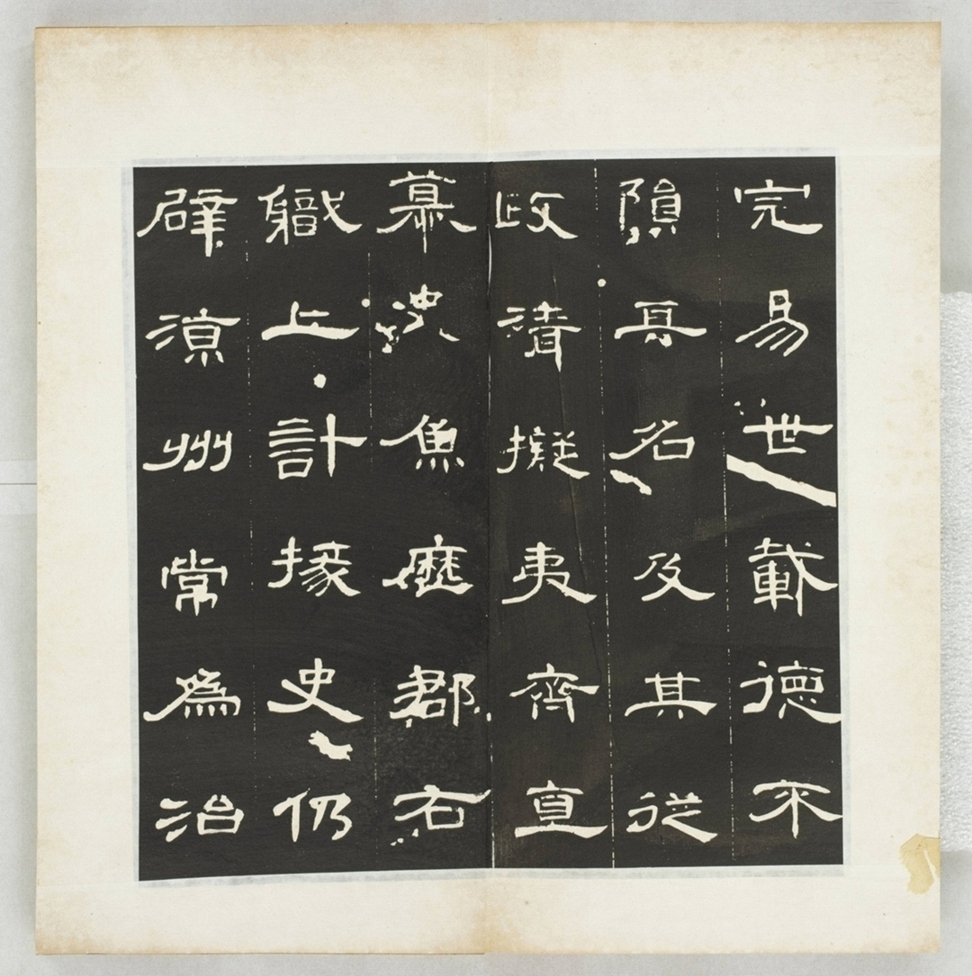 完易世載德不
隕其名及其從
政清擬夷齊直
慕史魚歷郡右
職上計掾史仍
辟涼州常為治